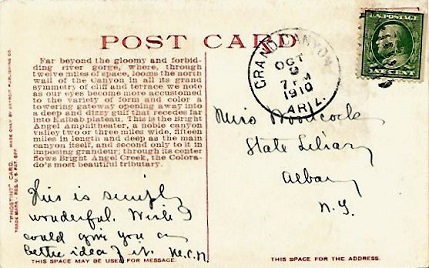 POST CARD
Far beyond the gloomy and forbid-
ding river gorge, where, through
twelve miles of space, looms the north
wall of the Canyon in all its grand
symmetry of cliff and terrace we note
as our eyes become more accustomed
to the variety of form and color a
towering gateway opening away into
a deep and dizzy gulf that recedes far
into Kaibab plateau. This is the Bright
Angel Amphitheater, a noble canyon
valley two or three miles wide, fifteen
miles in length and deep as the main
canyon itself, and second only to it in
imposing grandeur; through its center
flows Bright Angel Creek, the Colora-
do's most beautiful tributary.
"PHOSTINT" CARD.
This is simply
wonderful. Wish I
could give you any
better idea of it. H.C.N.
THIS SPACE MAY BE USED FOR MESSAGE.
GRAND CANYON
OCT
9
7 PM
1910
ARIZ.
U.S. POSTAGE
ONE CENT
Miss Woodcock
State Library
Albany
N.Y.
THIS SPACE IS FOR ADDRESS ONLY.